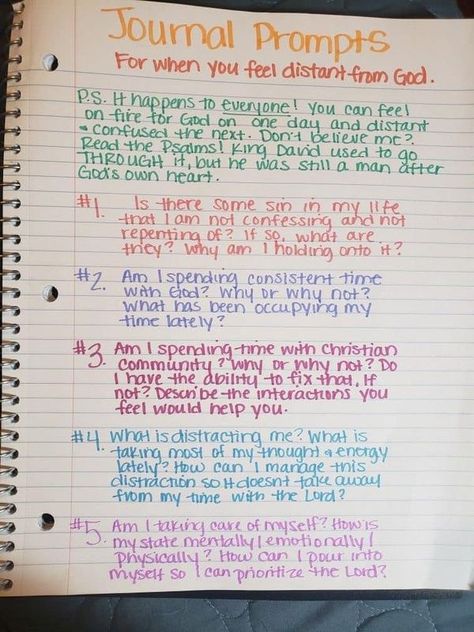 Journal Prompts
For when you feel distant from God.
P.S. It happens to everyone! You can feel
on fire for God on one day and distant
+ confused the next. Don't believe me?
Read the Psalms! King David used to go
THROUGH it, but he was still a man after
God's own heart.
#1. Is there some sin in my life
that I am not confessing and not
repenting of? If so, what are
they? Why am I holding onto it?
#2. Am I spending consistent time
with God? Why or why not?
What has been occupying my
time lately?
#3. Am I spending time with Christian
community? Why or why not? Do
I have the ability to fix that, if
not? Describe the interactions you
feel would help you.
#4. What is distracting me? What is
taking most of my thought + energy
lately? How can I manage this
distraction so it doesnt take away
from my time with the Lord?
#5. Am I taking care of myself? How is
my state mentally/emotionally/
physically? How can I pour into
myself so I can prioritize the Lord?